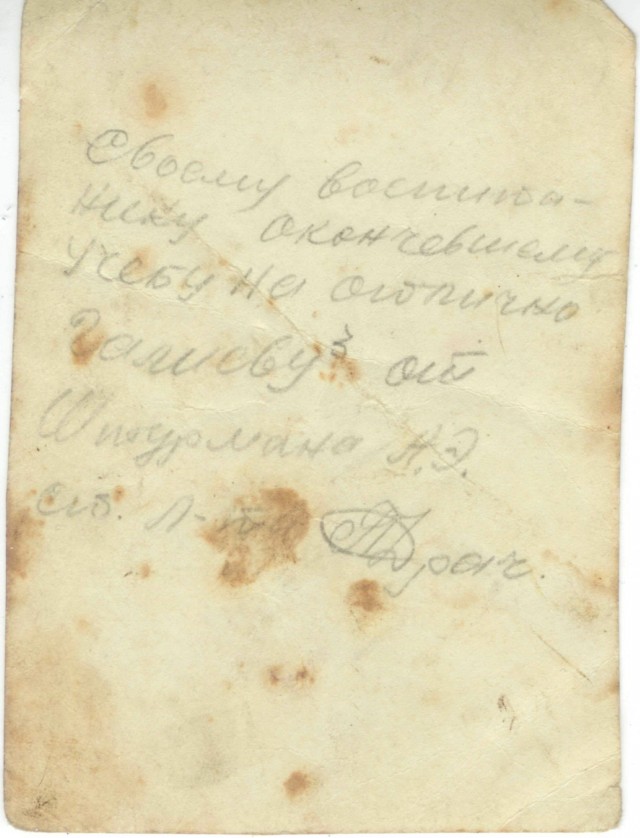 Своему воспита-
нику окончевшему
учебу на отлично
Галиеву З от
Штурмана А.Э.
ст. л-та Драч.